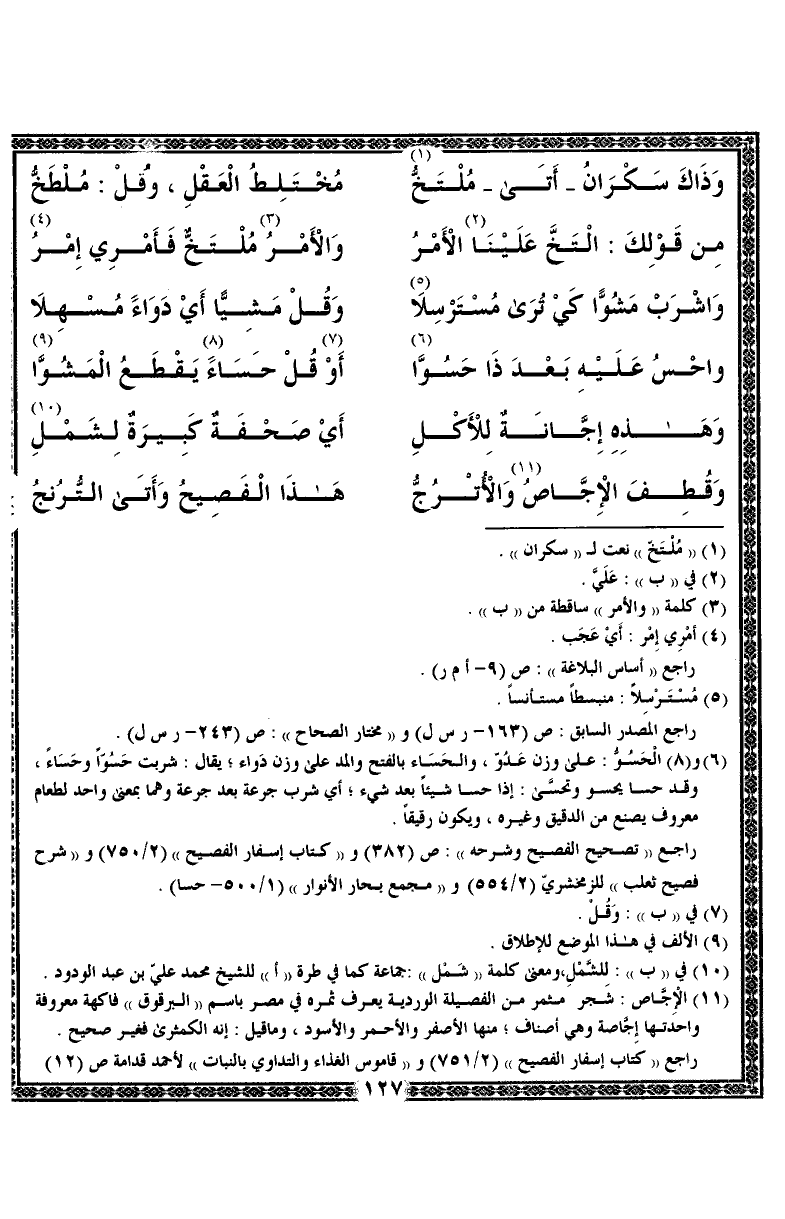 وَذَاكَ سَكْرَانُ ـ أَتَىٰ ـ مُلْتَخُّ (١) مُخْتَلِطُ الْعَقْلِ ، وَقُلْ : مُلْطَخُّ
مِن قَوْلِكَ : الْتَخَّ عَلَيْنَا (٢) الْأَمْرُ وَالْأَمْرُ (٣) مُلْتَخٌّ فَأَمْرِي إِمْرُ (٤)
وَاشْرَبْ مَشُوًّا كَيْ تُرَىٰ مُسْتَرْسِلًا (٥) وَقُلْ مَشِيًّا أَيْ دَوَاءً مُسْهِلَا
واحْسُ عَلَيْهِ بَعْدَ ذَا حَسُوَّا (٦) أَوْ قُلْ (٧) حَسَاءً (٨) يَقْطَعُ الْمَشُوَّا (٩)
وَهَـٰذِهِ إِجَّانَةٌ لِلْأَكْلِ أَيْ صَحْفَةٌ كَبِيرَةٌ لِشَمْلِ (١٠)
وَقُطِفَ الْإِجَّاصُ (١١) وَالْأُتْرُجُّ هَـٰذَا الْفَصِيحُ وَأَتَىٰ التُّرُنجُ
(١) « مُلْتَخّ » نعت لـ « سكران » .
(٢) في « ب » : عَلَيَّ .
(٣) كلمة « والأمر » ساقطة من « ب » .
(٤) أمْرِي إِمْر : أَيْ عَجَب .
راجع « أساس البلاغة » : ص (٩– أ م ر) .
(٥) مُسْتَرْسِلاً : منبسطاً مستأنساً .
راجع المصدر السابق : ص (١٦٣– ر س ل) و « مختار الصحاح » : ص (٢٤٣– ر س ل) .
(٦) و(٨) الْحَسُوُّ : علىٰ وزن عَدُوّ ، والحَسَاء بالفتح والمد علىٰ وزن دَواء ؛ يقال : شربت حَسُوّاً وحَسَاءً ،
وقد حسا يحسو وتحسَّىٰ : إذا حسا شيئاً بعد شيء ؛ أي شرب جرعة بعد جرعة وهما بمعنى واحد لطعام
معروف يصنع من الدقيق وغيره ، ويكون رقيقاً .
راجع « تصحيح الفصيح وشرحه » : ص (٣٨٢) و « كتاب إسفار الفصيح » (٧٥٠/٢) و « شرح
فصيح ثعلب » للزمخشريّ (٥٥٤/٢) و « مجمع بحار الأنوار » (٥٠٠/١– حسا) .
(٧) في « ب » : وَقُلْ .
(٩) الألف في هـٰذا الموضع للإطلاق .
(١٠) في « ب » : لِلشَّمْلِ،ومعنى كلمة « شَمْل » :جماعة كما في طرة « أ » للشيخ محمد عليّ بن عبد الودود .
(١١) الإِجَّاص : شجر مثمر من الفصيلة الوردية يعرف ثمره في مصر باسم « البرقوق » فاكهة معروفة
واحدتها إِجَّاصة وهي أصناف ؛ منها الأصفر والأحمر والأسود ، وماقيل : إنه الكمثرىٰ فغير صحيح .
راجع « كتاب إسفار الفصيح » (٧٥١/٢) و « قاموس الغذاء والتداوي بالنبات » لأحمد قدامة ص (١٢)
١٢٧